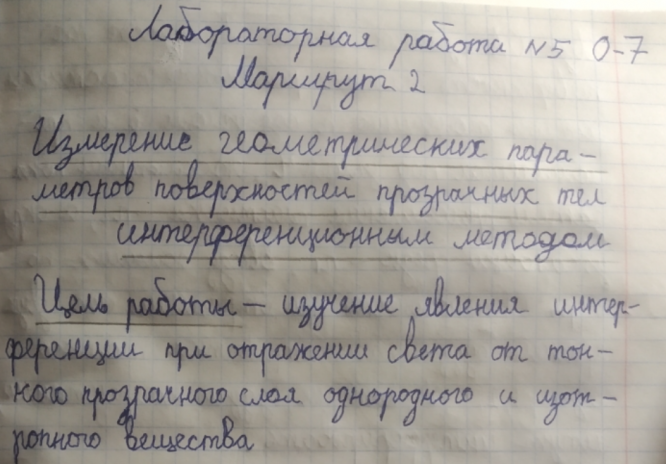 Лабораторная работа №5 О-7
Маршрут 2
Измерение геометрических пара-
метров поверхностей прозрачных тел
интерференционным методом
Цель работы – изучение явления интер-
ференции при отражении света от тон-
кого прозрачного слоя однородного и изот-
ропного вещества